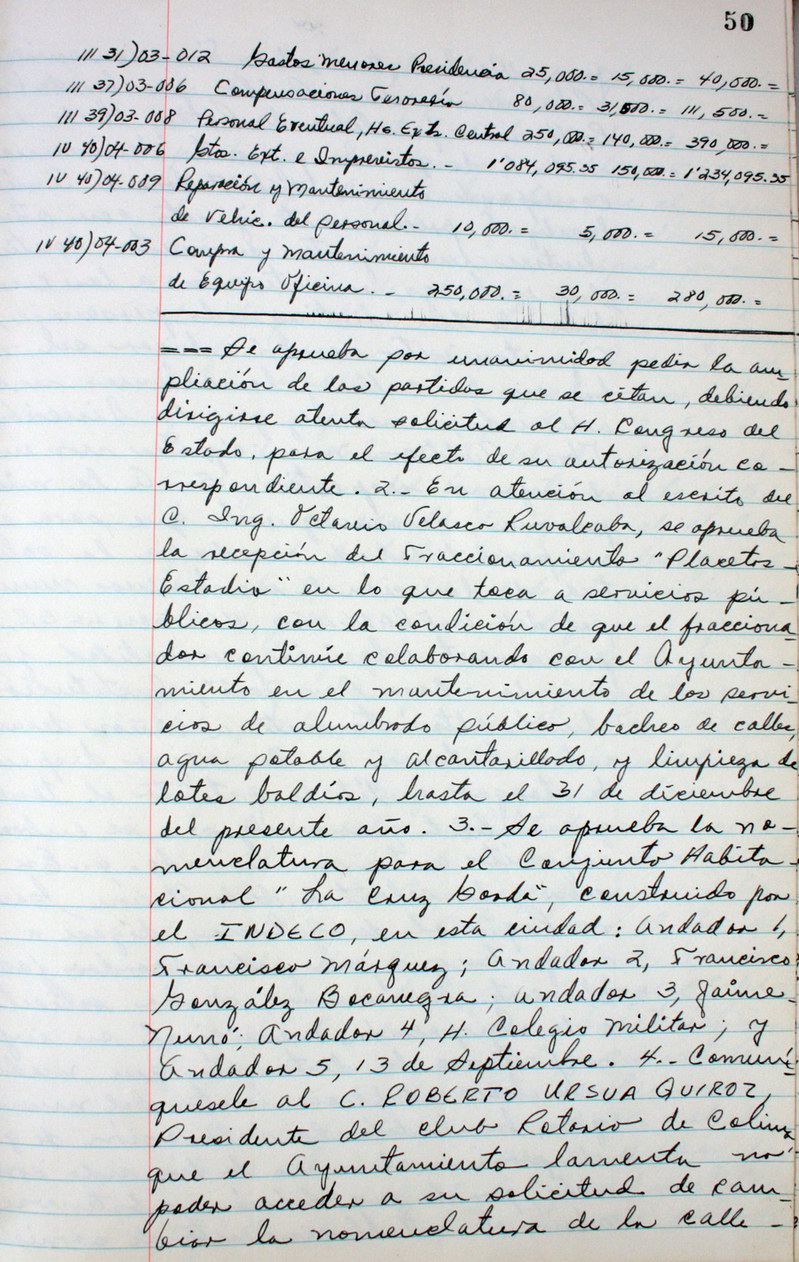 50
III 31)03-012 Gastos Menores Presidencia 25,000.= 15,000.= 40,000.=
III 37)03-006 Compensaciones Tesorería 80,000.= 31,500.= 111,500.=
III 39)03-008 Personal Eventual, Hs. Extr. Central 250,000.= 140,000.= 390,000.=
IV 40)04-006 Gtos. Ext. e Imprevistos.- 1'084,095.35 150,000.= 1'234,095.35
IV 40)04-009 Reparación y Mantenimiento
de Vehic. del personal.- 10,000.= 5,000.= 15,000.=
IV 40)04-003 Compra y mantenimiento
de Equipo Oficina.- 250,000.= 30,000.= 280,000.=
=== Se aprueba por unanimidad pedir la am-
pliación de las partidas que se citan, debiendo
dirigirse atenta solicitud al H. Congreso del
Estado, para el efecto de su autorización co-
rrespondiente. 2.- En atención al escrito del
C. Ing. Octavio Velasco Ruvalcaba, se aprueba
la recepción del Fraccionamiento "Placetas
Estadio" en lo que toca a servicios pú-
blicos, con la condición de que el fracciona
dor continúe colaborando con el Ayunta-
miento en el mantenimiento de los servi-
cios de alumbrado público, bacheo de calles,
agua potable y alcantarillado, y limpieza de
lotes baldíos, hasta el 31 de diciembre
del presente año. 3.- Se aprueba la no-
menclatura para el Conjunto Habita-
cional "La Cruz Gorda", construido por
el INDECO, en esta ciudad: Andador 1,
Francisco Márquez; Andador 2, Francisco
González Bocanegra; Andador 3, Jaime
Nunó; Andador 4, H. Colegio Militar; y
Andador 5, 13 de Septiembre. 4.- Comuní-
quesele al C. ROBERTO URSUA QUIROZ,
Presidente del club Rotario de Colima
que el Ayuntamiento lamenta no
poder acceder a su solicitud de cam-
biar la nomenclatura de la calle -